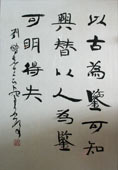 以古為鑒可知
興替以人為鑒
可明得失